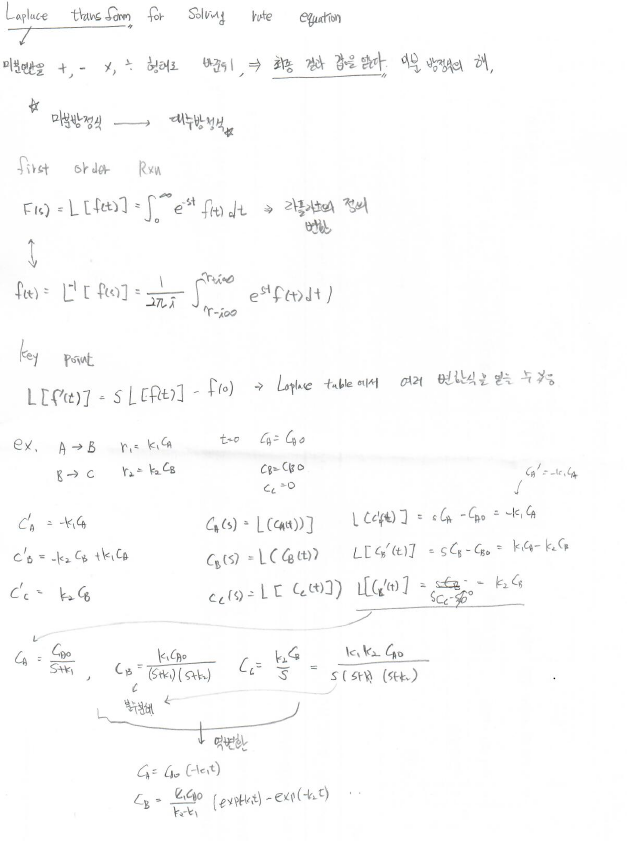 Laplace transform for Solving rate equation
미분연산을 +, - ×, ÷ 형태로 바꾼뒤, ⇒ 최종 결과 값을 얻는다. 미분 방정식의 해,
☆ 미분방정식 → 대수방정식☆
first order Rxn
F(s) = L[f(t)] = ∫₀^∞ e^-st f(t) dt ⇒ 라플라스의 정의
변환
↕
f(t) = L⁻¹[f(s)] = 1/2πi ∫_{r-i∞}^{r+i∞} e^st f(t) dt
key point
L[f'(t)] = S L[f(t)] - f(0) → Laplace table에서 여러 변환식을 얻을 수 있음
ex. A → B r₁ = k₁C_A t=0 C_A = C_A0
B → C r₂ = k₂C_B C_B = C_B0
C_C = 0
C_A' = -k₁C_A
C'_A = -k₁C_A C_A(s) = L(C_A(t))] L(C'(t)] = sC_A - C_A0 = -k₁C_A
C'_B = -k₂C_B + k₁C_A C_B(s) = L(C_B(t)) L[C_B'(t)] = sC_B - C_B0 = k₁C_A - k₂C_B
C'_C = k₂C_B C_C(s) = L[C_C(t)]) L[C_B'(t)] = sC_C - 0 = k₂C_B
C_A = C_A0/(s+k₁), C_B = k₁C_A0/((s+k₁)(s+k₂)) C_C = k₂C_B/s = k₁k₂C_A0/(s(s+k₁)(s+k₂))
분수분해
역변환
C_A = C_A0 (-k₁t)
C_B = k₁C_A0/(k₂-k₁) (exp(-k₁t) - exp(-k₂t) ..